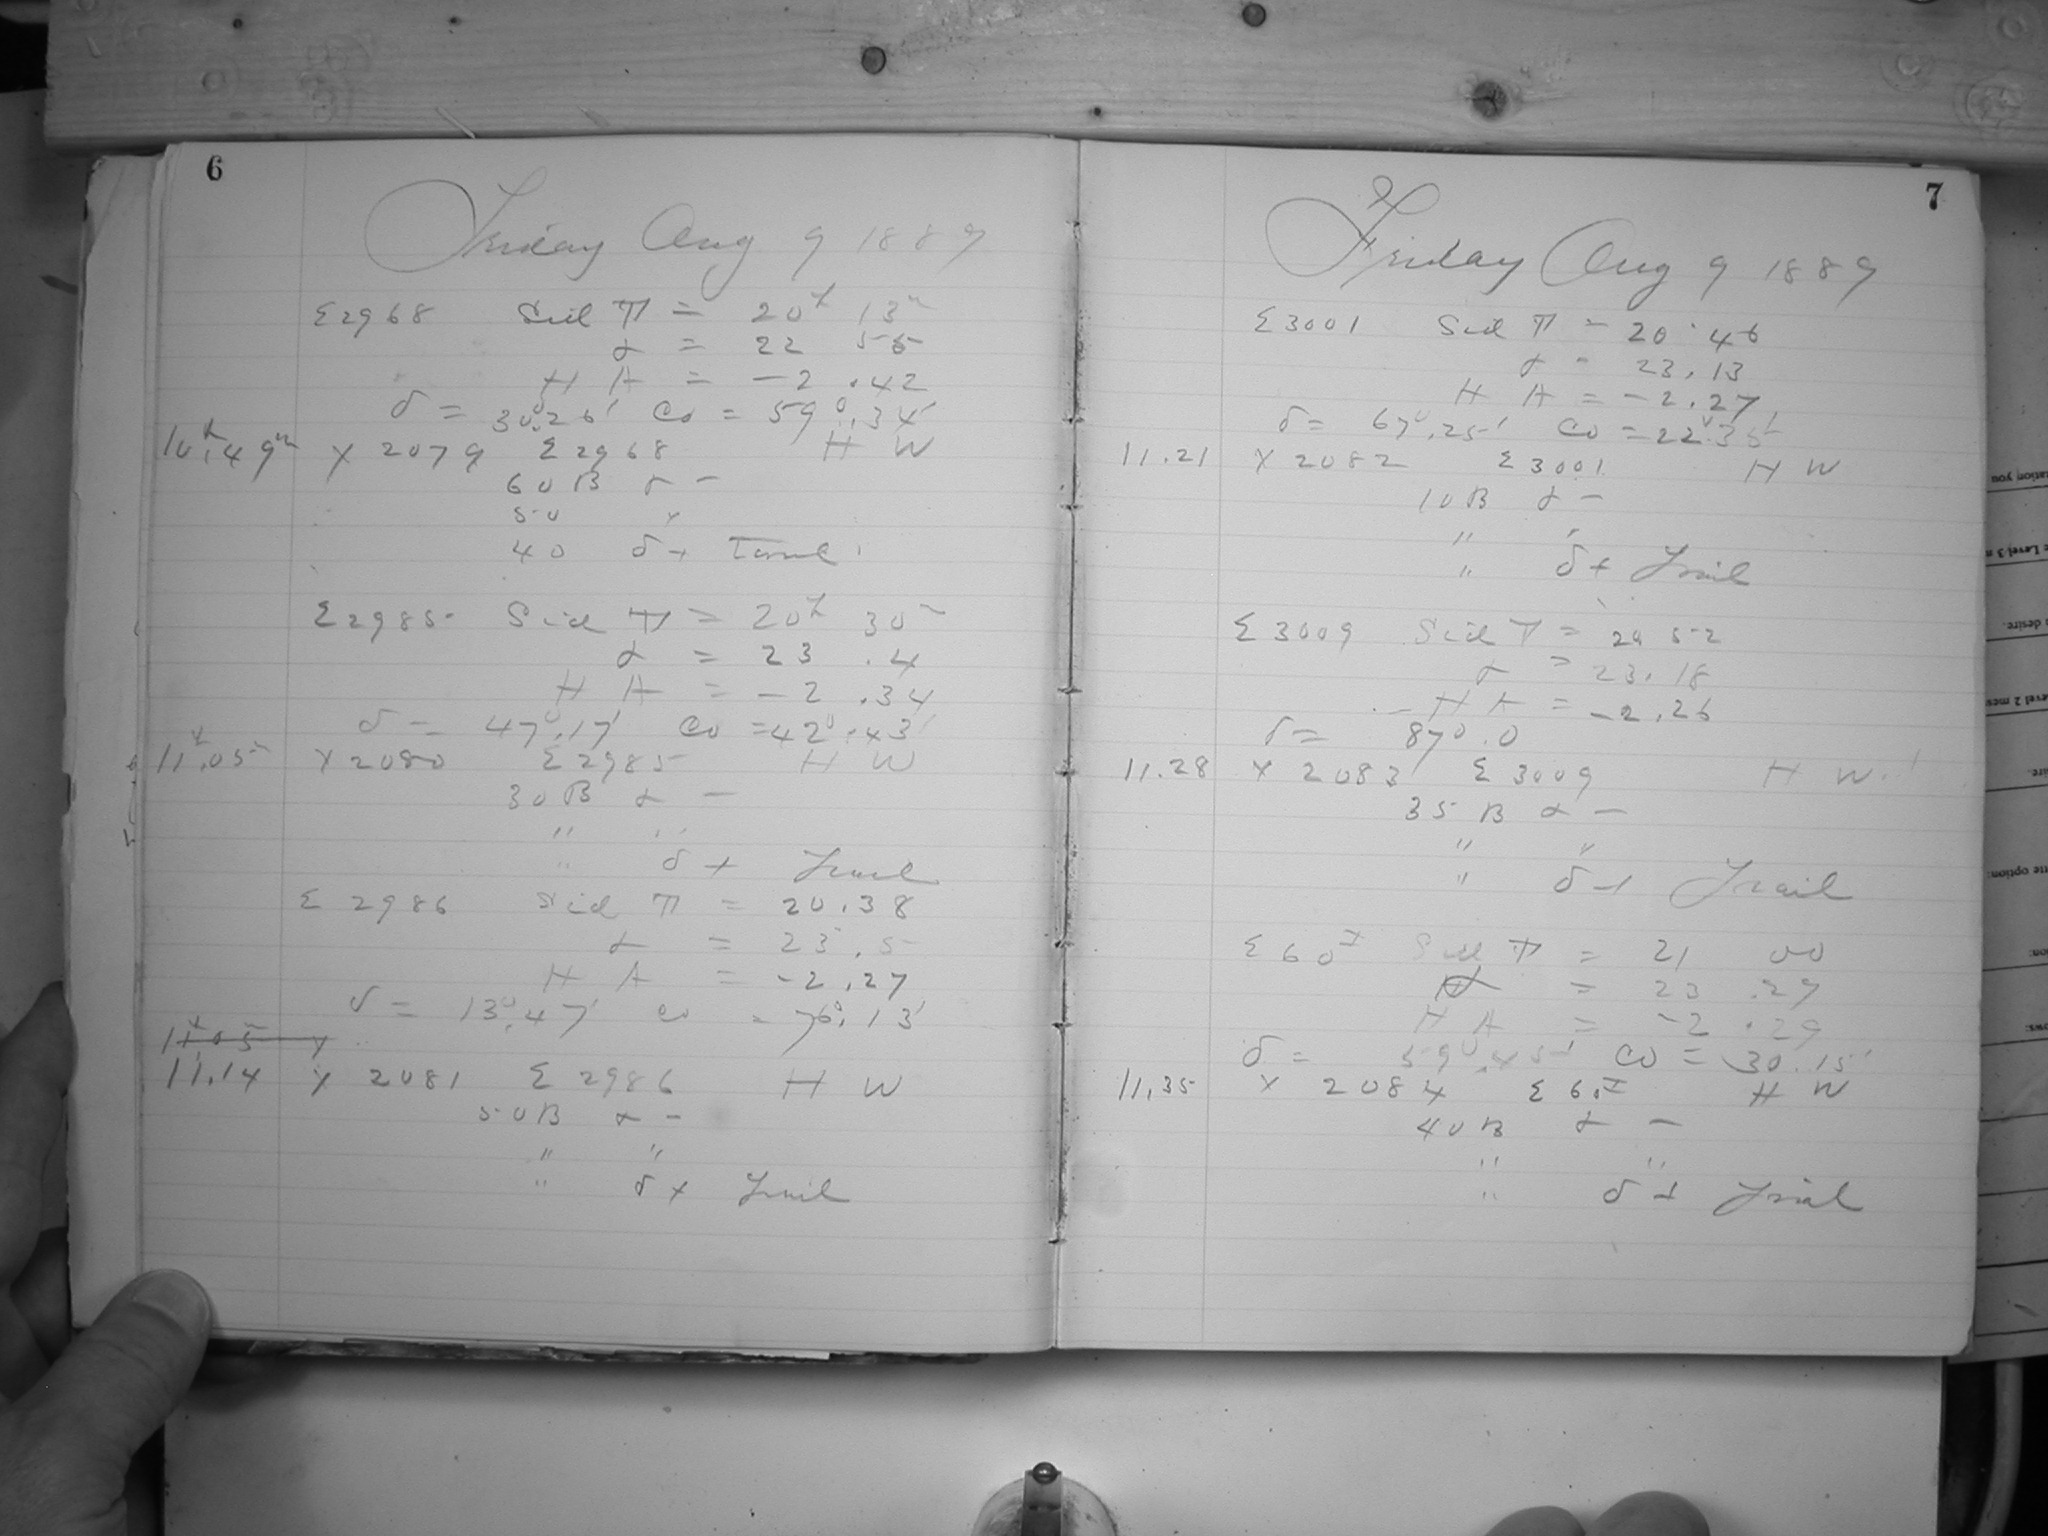 6
Friday Aug 9 1889
Σ2968 Sid T = 20h 13m
α = 22 55
H A = -2 .42
δ = 30°.26' Co = 59°.34'
10h.49m X 2079 Σ2968 H W
60 B α -
50 "
40 δ + Trail
Σ2985 Sid T = 20h 30m
α = 23 .4
H A = -2 .34
δ = 47°.17' Co = 42°.43'
11h.05m X 2080 Σ2985 H W
30 B α -
" "
" δ + Trail
Σ 2986 Sid T = 20.38
α = 23.5
H A = -2.27
δ = 13°.47' Co = 76°.13'
11h 05m X
11.14 X 2081 Σ 2986 H W
50 B α -
" "
" δ + Trail
7
Friday Aug 9 1889
Σ3001 Sid T = 20.46
α = 23.13
H A = -2.27
δ = 67°.25' Co = 22°.35'
11.21 X 2082 Σ3001 H W
10 B α -
" "
" δ + Trail
Σ3009 Sid T = 20 52
α = 23.18
H A = -2.26
δ = 87°.0
11.28 X 2083 Σ 3009 H W.
35 B α -
" "
" δ + Trail
Σ60 I Sid T = 21 00
α = 23 .29
H A = -2 .29
δ = 59°.45' Co = 30.15'
11.35 X 2084 Σ60 I H W
40 B α -
" "
" δ + Trail
ration you
desire.
Level 2
option: